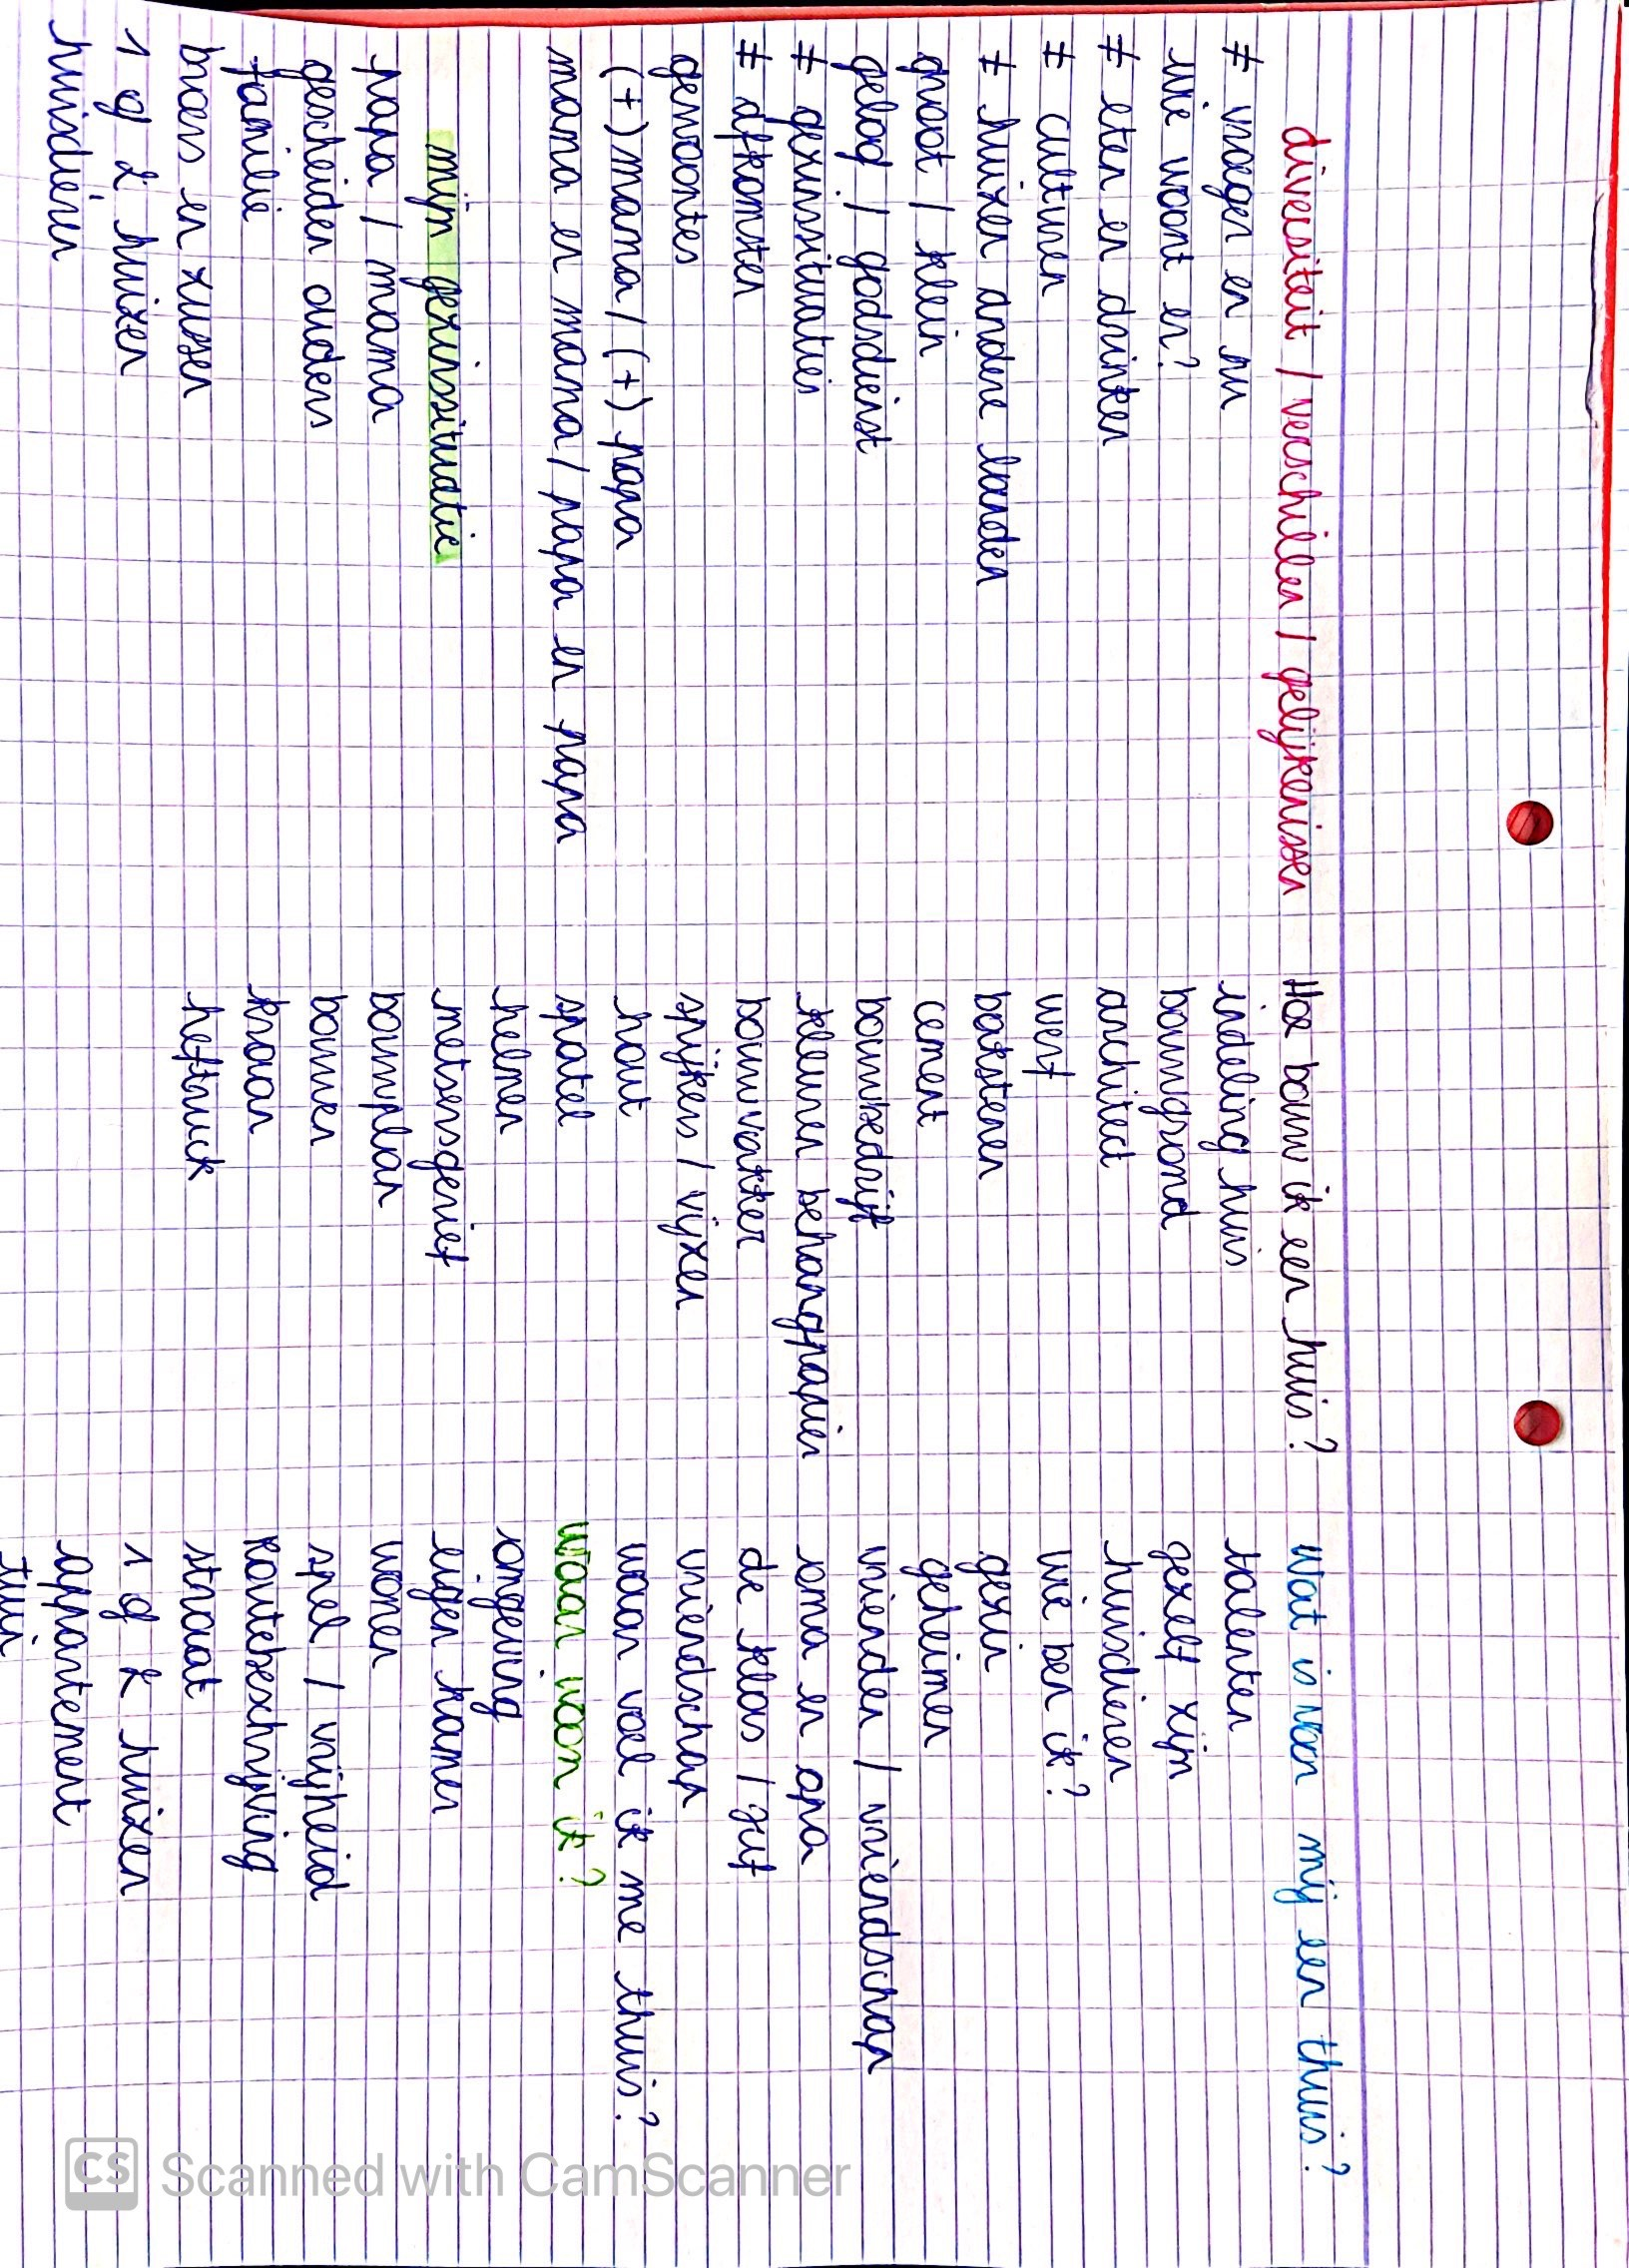 diversiteit / verschillen / gelijkenissen
≠ vroeger en nu
wie woont er?
≠ eten en drinken
≠ culturen
≠ huizen andere landen
groot / klein
geloof / godsdienst
≠ gezinssituaties
≠ afkomsten
gewoontes
(+) mama / (+) papa
mama en mama / papa en papa
mijn gezinssituatie
papa / mama
gescheiden ouders
familie
broers en zussen
1 of 2 huizen
huisdieren
Hoe bouw ik een huis?
indeling huis
bouwgrond
architect
werf
bakstenen
cement
bouwbedrijf
kleuren behangpapier
bouwvakker
spijkers / vijzen
hout
spatel
helmen
metsersgerief
bouwplan
bouwen
kraan
heftruck
Wat is voor mij een thuis?
talenten
gezelf zijn
huisdieren
wie ben ik?
gezin
geheimen
vrienden / vriendschap
oma en opa
de klas / juf
vriendschap
waar voel ik me thuis?
waar woon ik?
omgeving
eigen kamer
wonen
spel / vrijheid
routebeschrijving
straat
1 of 2 huizen
appartement
tuin
CS Scanned with CamScanner